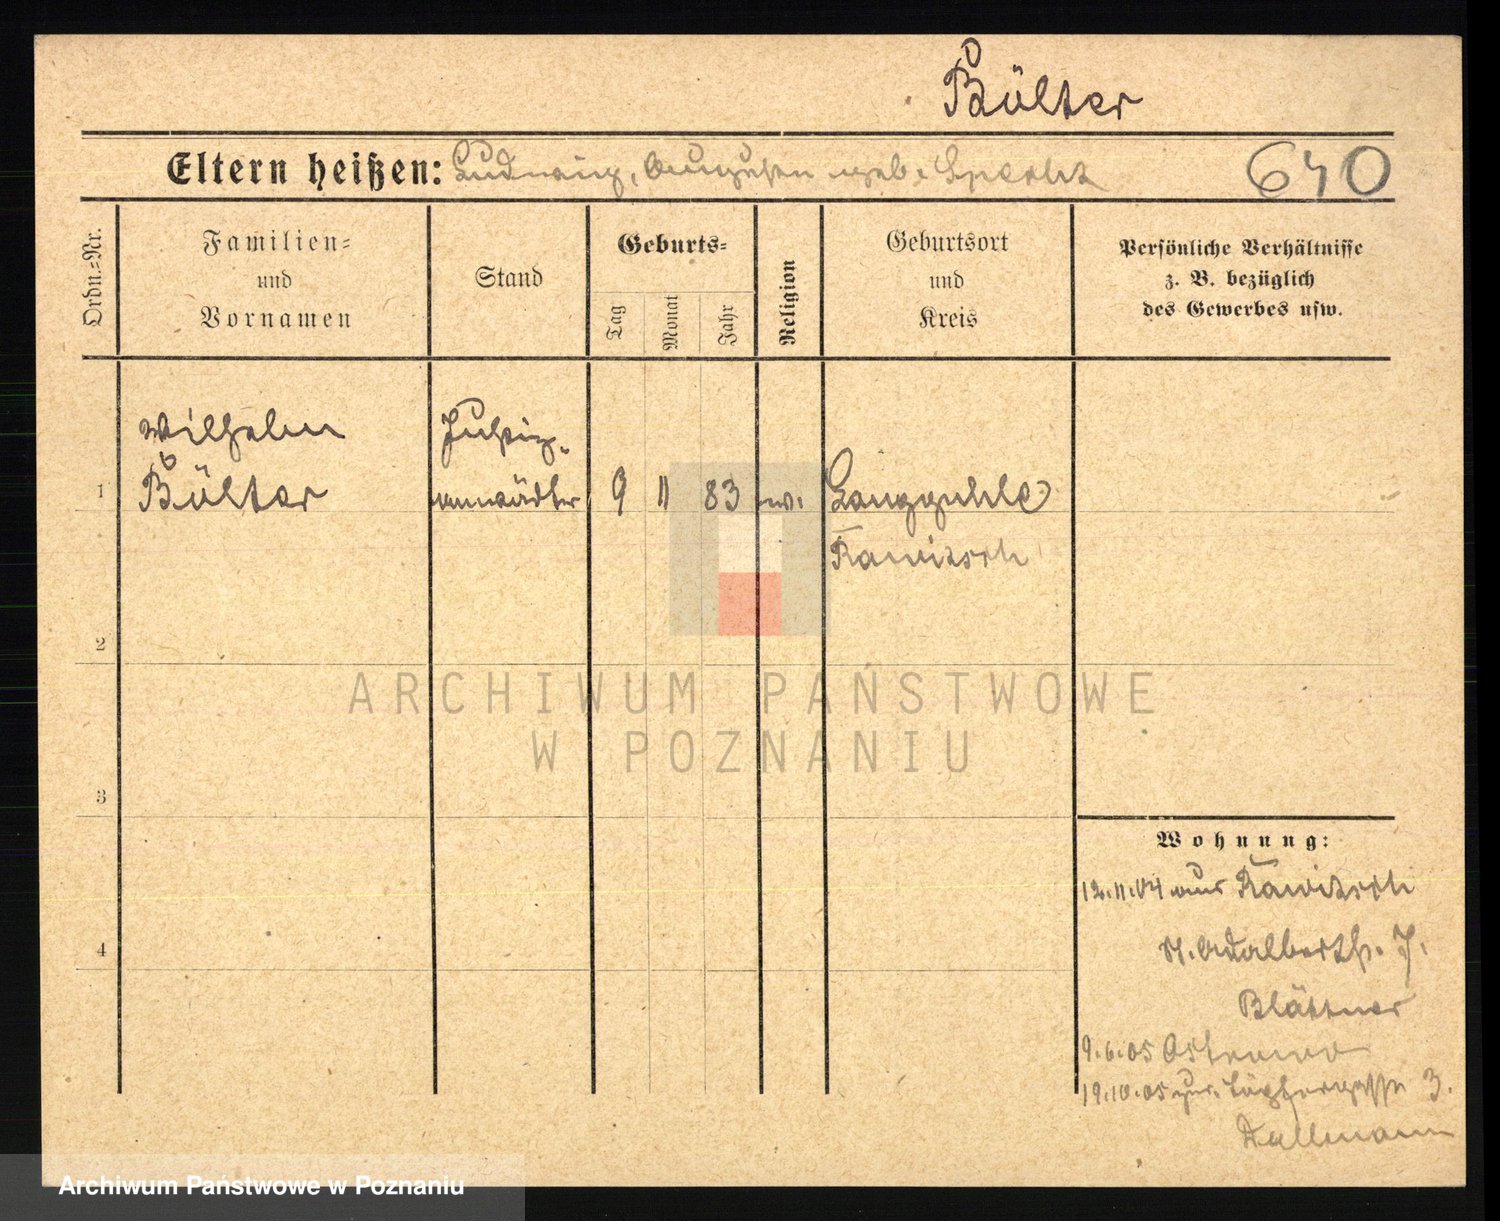 Bülter
Eltern heißen: Ludwig, Augusten geb.
640
Ordn.-Nr.
Familien-
und
Vornamen
Stand
Geburts-
Tag
Monat
Jahr
Religion
Geburtsort
und
Kreis
Persönliche Verhältnisse
z. B. bezüglich
des Gewerbes usw.
Wilhelm Justiz-
1 Bülter anwärter 9 11 83 ev. Langguhle
Rawitsch
2
ARCHIWUM PAŃSTWOWE
W POZNANIU
3
Wohnung:
12.11.04 aus Rawitsch
St. Adalbertstr. 7.
Blättner
4
9.6.05 Ostrowo
19.10.05 zur. 3.
Dallmann
Archiwum Państwowe w Poznaniu